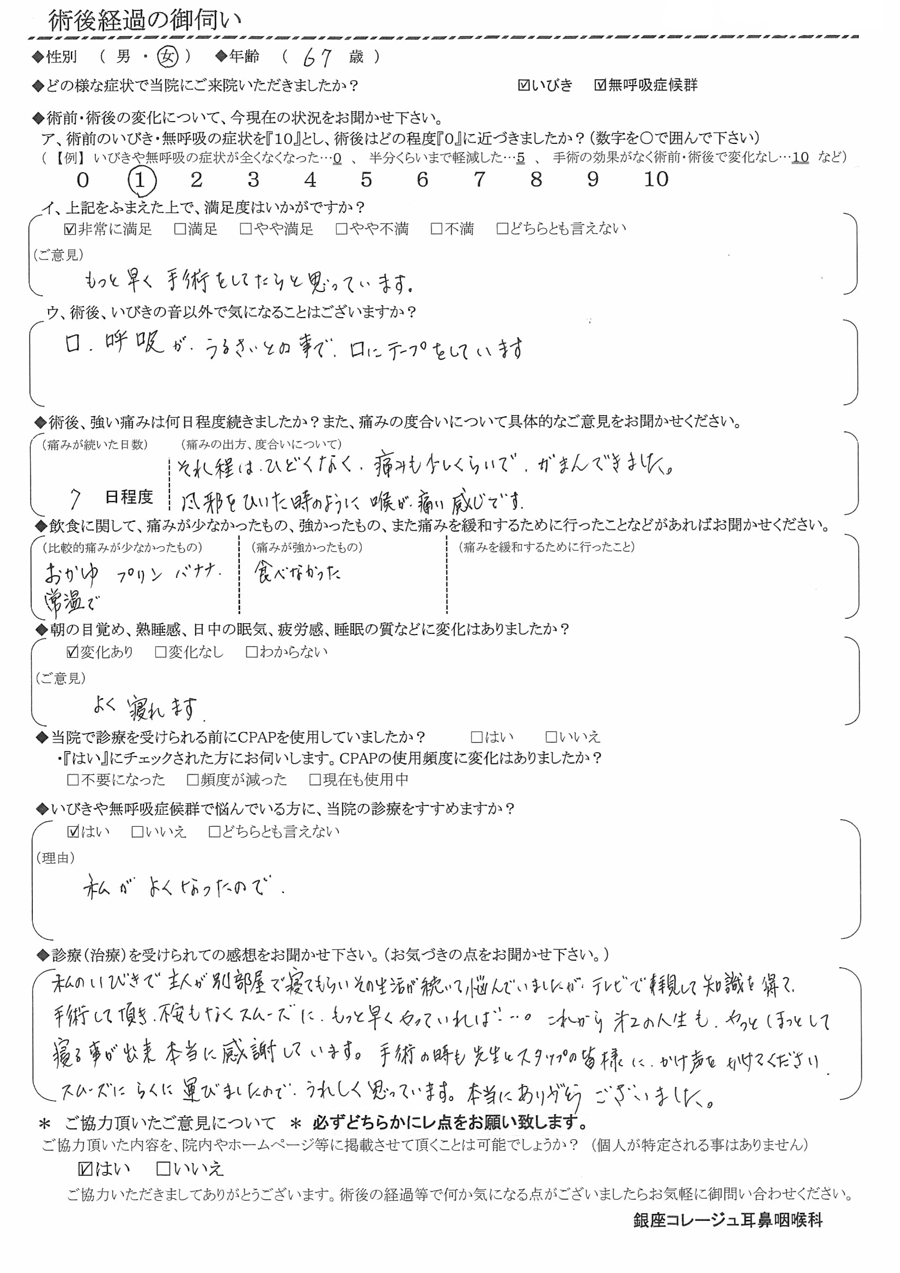 術後経過の御伺い
◆性別 （ 男 ・ 女 ） ◆年齢 （ 67 歳 ）
◆どの様な症状で当院にご来院いただきましたか？ ☑いびき ☑無呼吸症候群
◆術前・術後の変化について、今現在の状況をお聞かせ下さい。
ア、術前のいびき・無呼吸の症状を『10』とし、術後はどの程度『0』に近づきましたか？（数字を〇で囲んで下さい）
（【例】 いびきや無呼吸の症状が全くなくなった…0 、 半分くらいまで軽減した…5 、 手術の効果がなく術前・術後で変化なし…10 など）
0 1 2 3 4 5 6 7 8 9 10
イ、上記をふまえた上で、満足度はいかがですか？
☑非常に満足 □満足 □やや満足 □やや不満 □不満 □どちらとも言えない
（ご意見）
もっと早く手術をしてたらと思っています。
ウ、術後、いびきの音以外で気になることはございますか？
口、呼吸が、うるさいとの事で、口にテープをしています
◆術後、強い痛みは何日程度続きましたか？また、痛みの度合いについて具体的なご意見をお聞かせください。
（痛みが続いた日数） （痛みの出方、度合いについて）
それ程は、ひどくなく、痛みも少しくらいで、がまんできました。
7 日程度 風邪をひいた時のように喉が、痛い感じです。
◆飲食に関して、痛みが少なかったもの、強かったもの、また痛みを緩和するために行ったことなどがあればお聞かせください。
（比較的痛みが少なかったもの） （痛みが強かったもの） （痛みを緩和するために行ったこと）
おかゆ プリン バナナ、 食べなかった
常温で
◆朝の目覚め、熟睡感、日中の眠気、疲労感、睡眠の質などに変化はありましたか？
☑変化あり □変化なし □わからない
（ご意見）
よく寝れます、
◆当院で診療を受けられる前にCPAPを使用していましたか？ □はい □いいえ
・『はい』にチェックされた方にお伺いします。CPAPの使用頻度に変化はありましたか？
□不要になった □頻度が減った □現在も使用中
◆いびきや無呼吸症候群で悩んでいる方に、当院の診療をすすめますか？
☑はい □いいえ □どちらとも言えない
（理由）
私がよくなったので、
◆診療（治療）を受けられての感想をお聞かせ下さい。（お気づきの点をお聞かせ下さい。）
私のいびきで主人が別部屋で寝てもらいその生活が続いて悩んでいましたが、テレビで拝見して知識を得て、
手術して頂き、不安もなくスムーズに、もっと早くやっていれば！…。これから才2の人生も、やっとほっとして
寝る事が出来本当に感謝しています。手術の時も先生とスタップの皆様に、かけ声をかけてください
スムーズにらくに運びましたので、うれしく思っています。本当にありがとうございました。
＊ ご協力頂いたご意見について ＊ 必ずどちらかにレ点をお願い致します。
ご協力頂いた内容を、院内やホームページ等に掲載させて頂くことは可能でしょうか？（個人が特定される事はありません）
☑はい □いいえ
ご協力いただきましてありがとうございます。術後の経過等で何か気になる点がございましたらお気軽に御問い合わせください。
銀座コレージュ耳鼻咽喉科